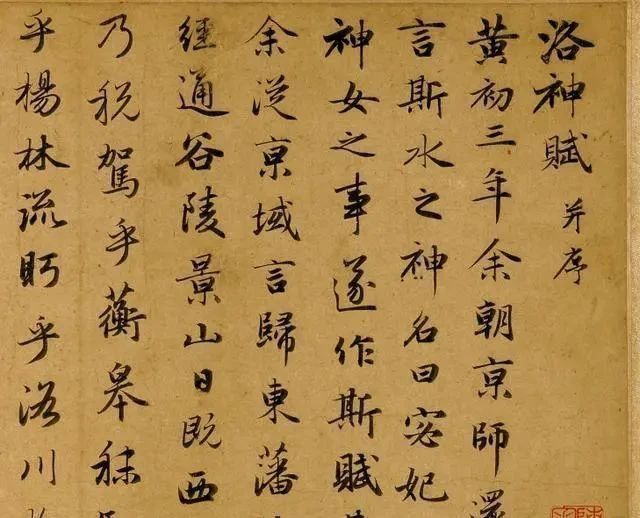 洛神賦 并序
黃初三年余朝京師還
言斯水之神名曰宓妃
神女之事遂作斯賦
余從京域言歸東藩
經通谷陵景山日既西
乃税駕乎蘅皋秣
乎楊林流眄乎洛川